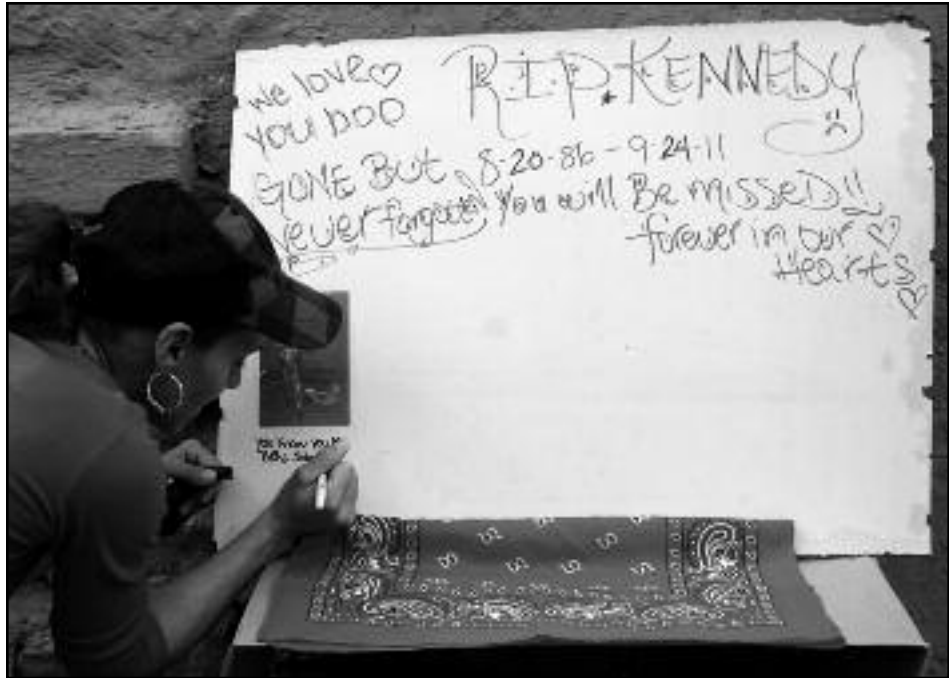 we love
YOU BOO
R.I.P. KENNEDY
8-20-86 - 9-24-11
GONE BUT
never forgotten
You will Be missed!!
forever in our
Hearts
You know you